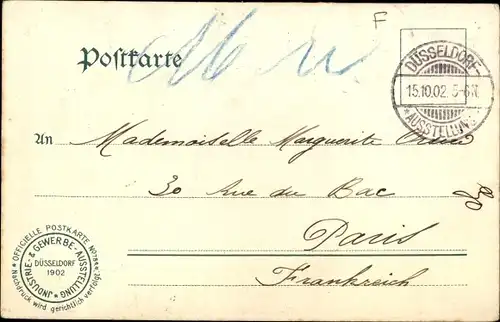 F
Postkarte
DÜSSELDORF
15.10.02. 5-6N.
*AUSSTELLUNG*
An Mademoiselle Marguerite
30 Rue du Bac
Paris
Frankreich
OFFICIELLE POSTKARTE
JNDUSTRIE- & GEWERBE-AUSSTELLUNG
DÜSSELDORF
1902
Nachdruck wird gerichtlich verfolgt